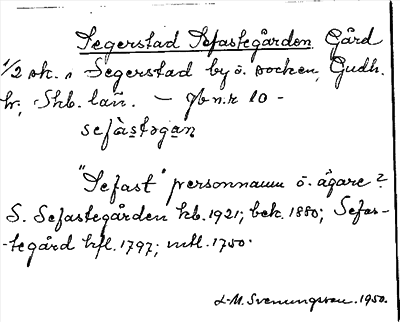 Segerstad Sefastegården Gård
1/2 mk. i Segerstad by o. socken, Gudh.
hr, Skb. län. — Jb n:r 10 -
sefàstəgan
"Sefast" personnamn o. ägare?
S. Sefastegården kb. 1921; bek. 1880; Sefas-
-tegård hfl. 1797; mtl. 1750.
L-M. Svenungsson. 1950.